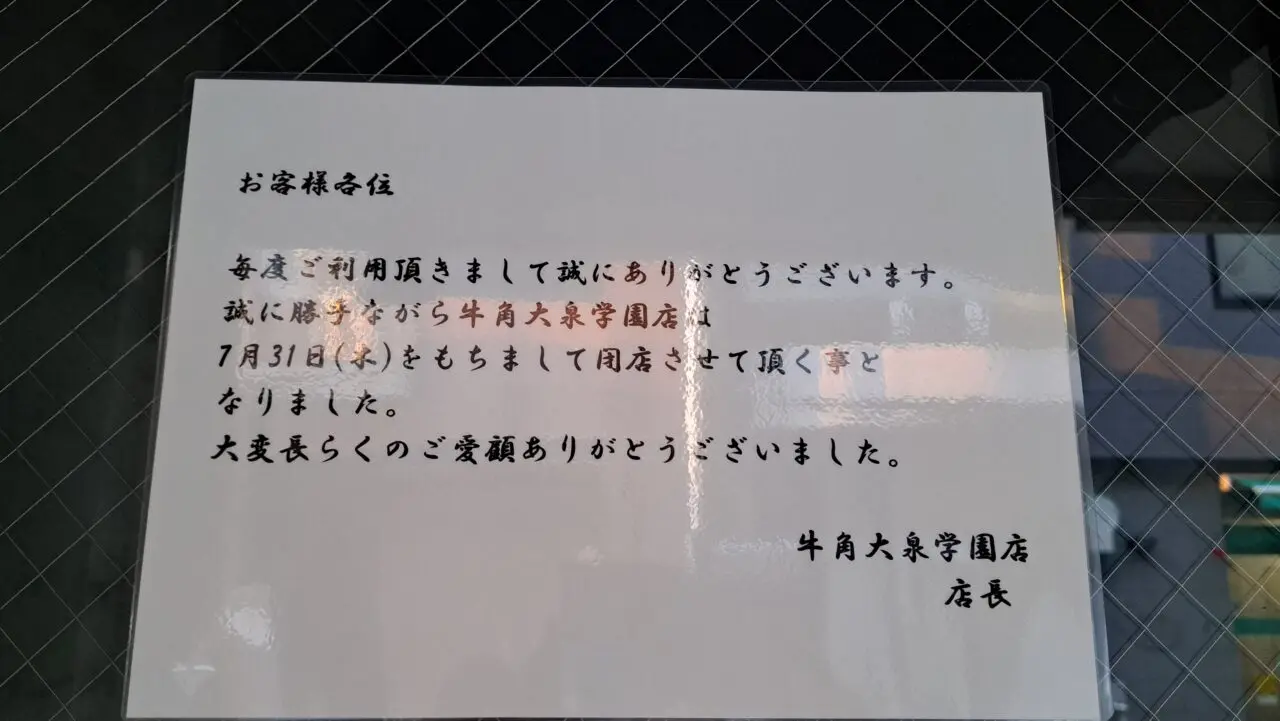 お客様各位
毎度ご利用頂きまして誠にありがとうございます。
誠に勝手ながら牛角大泉学園店は
7月31日(木)をもちまして閉店させて頂く事と
なりました。
大変長らくのご愛顧ありがとうございました。
牛角大泉学園店
店長